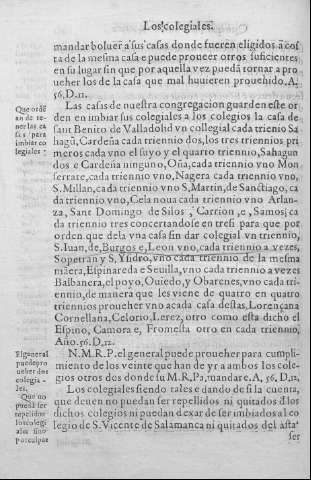 Los colegiales.
mandar boluer a sus casas donde fueren eligidos a cos
ta de la mesma casa e puede proueer otros suficientes
en su lugar sin que por aquella vez pueda tornar a pro
ueher los de la casa que mal huuieren prouehido. A.
56, D.12.
Las casas de nuestra congregacion guarden este or
den en imbiar sus colegiales a los colegios la casa de
sant Benito de Valladolid vn collegial cada trienio Sa
hagũ, Cardeña cada triennio dos, los tres triennios pri
meros cada vno el suyo y el quarto triennio, Sahagun
dos e Cardeña ninguno, Oña, cada triennio vno Mon
serrate, cada triennio vno, Nagera cada triennio vno,
S. Millan, cada triennio vno S. Martin, de Sanctiago, ca
da triennio vno, Cela noua cada triennio vno Arlan-
za, Sant Domingo de Silos, Carrion, e, Samos; ca
da triennio tres concertandose en tresi para que por
orden que dela vna casa sin dar colegial vn triennio,
S. Iuan, de Burgos e, Leon vno, cada triennio a vezes,
Sopetran y S, Ysidro, vno cada triennio de la mesma
manera, Espinareda e Seuilla, vno cada triennio a vezes
Balbanera, el poyo, Ouiedo, y Obarenes, vno cada tri-
ennio, de manera que les viene de quatro en quatro
triennios proueher vno acada casa destas, Lorençana
Cornellana, Celorio, Lerez, otro como esta dicho el
Espino, Camora e, Fromesta otro en cada triennio,
Año. 56. D, 12.
N. M. R. P. el general puede proueher para cumpli-
miento de los veinte que han de yr a ambos los cole-
gios otros dos donde su M. R, Pa, mandare. A, 56, D, 12,
Los colegiales siendo tales e dando de si la cuenta,
que deuen no puedan ser repellidos ni quitados đ los
dichos colegios ni puedan dexar de ser imbiados al co
legio de S. Vicente de Salamanca ni quitados del asta
ser
Que ordẽ
an de te-
ner las ca
sas para
imbiar co
legiales:
El general
puede pro
ueher dos
colegia-
les.
Que no
pueda ser
repelidos
los colegi
ales sino
por culpas